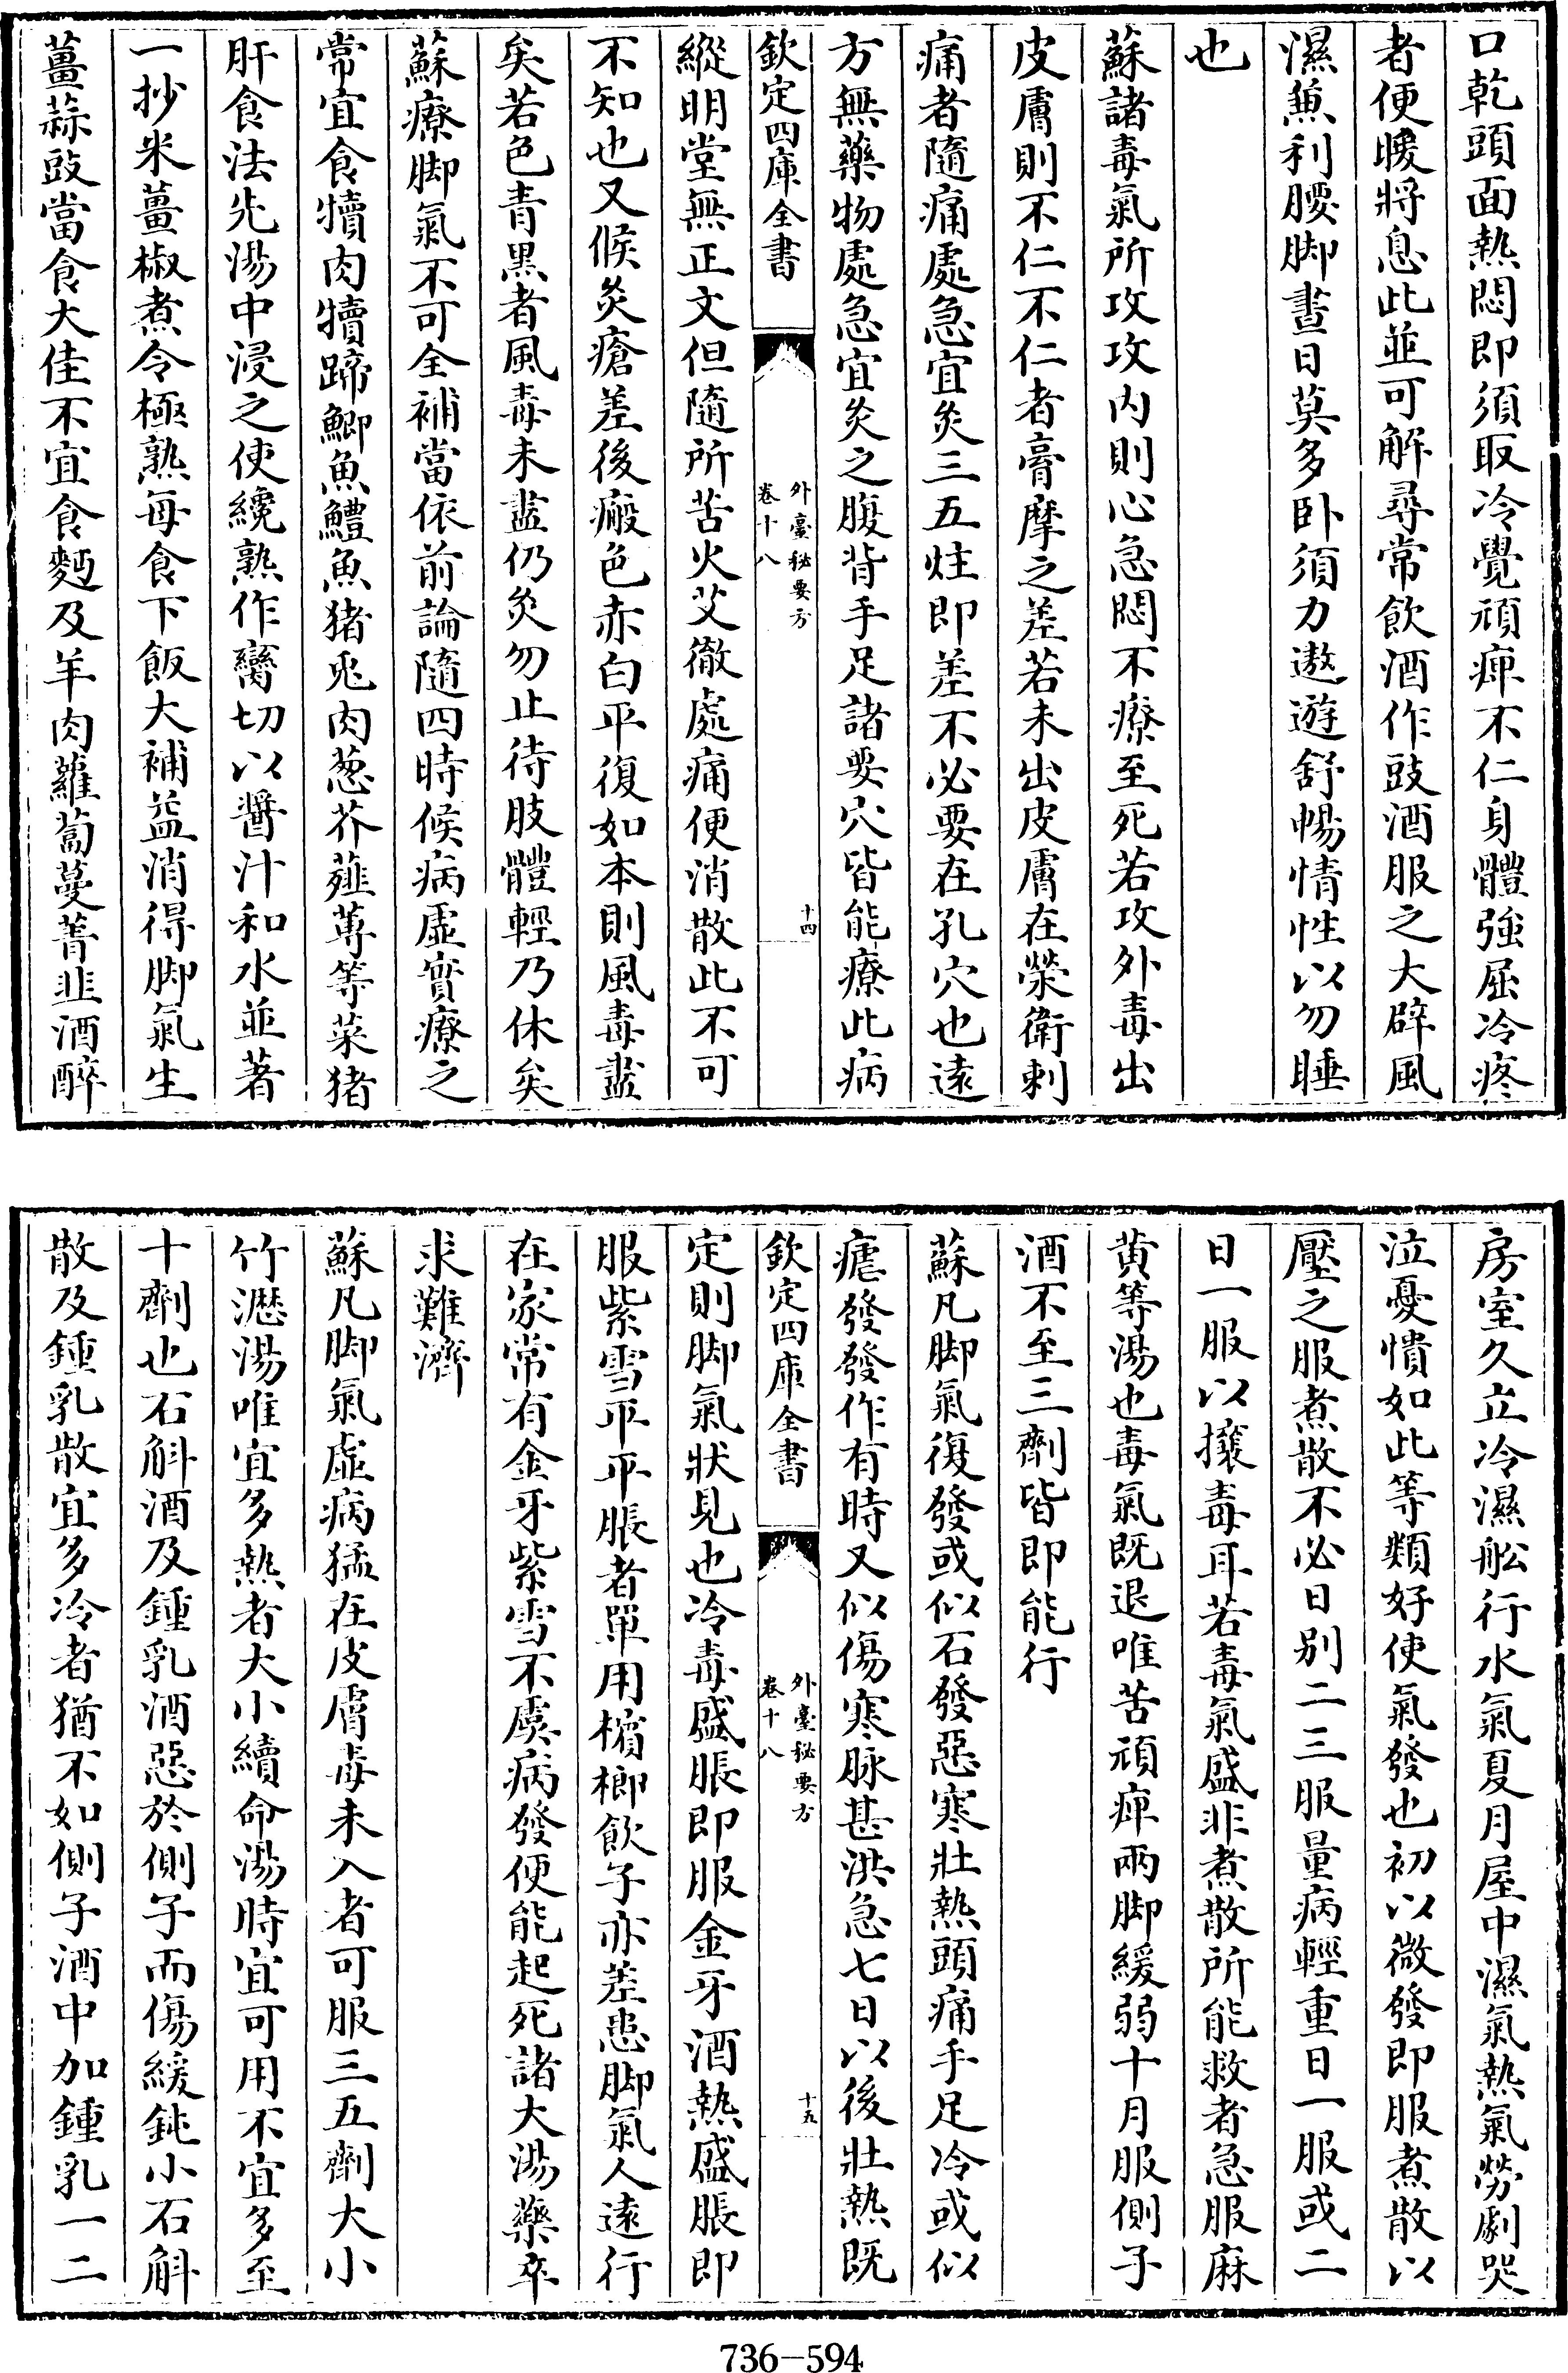 口乾頭面熱悶即須取冷覺頑痺不仁身體強屈冷疼
者便暖將息此並可解尋常飲酒作豉酒服之大辟風
濕兼利腰脚晝日莫多卧須力遨遊舒暢情性以勿睡
也
蘇諸毒氣所攻攻内則心急悶不療至死若攻外毒出
皮膚則不仁不仁者膏摩之差若未出皮膚在榮衛刺
痛者隨痛處急宜灸三五炷即差不必要在孔穴也遠
方無藥物處急宜灸之腹背手足諸要穴皆能療此病
欽定四庫全書
外臺秘要方
卷十八
十四
縱明堂無正文但隨所苦火艾徹處痛便消散此不可
不知也又候灸瘡差後瘢色赤白平復如本則風毒盡
矣若色青黑者風毒未盡仍灸勿止待肢體輕乃休矣
蘇療脚氣不可全補當依前論隨四時候病虛實療之
常宜食犢肉犢蹄鯽魚鱧魚猪兎肉葱芥薤蓴等菜猪
肝食法先湯中浸之使纔熟作臠切以醬汁和水並著
一抄米薑椒煮令極熟每食下飯大補益消得脚氣生
薑蒜豉當食大佳不宜食麪及羊肉蘿蔔蔓菁韭酒醉
房室久立冷濕舩行水氣夏月屋中濕氣熱氣勞劇哭
泣憂憒如此等類好使氣發也初以微發即服煮散以
壓之服煮散不必日别二三服量病輕重日一服或二
日一服以攘毒耳若毒氣盛非煮散所能救者急服麻
黄等湯也毒氣既退唯苦頑痺兩脚緩弱十月服側子
酒不至三劑皆即能行
蘇凡脚氣復發或似石發惡寒壯熱頭痛手足冷或似
瘧發發作有時又似傷寒脉甚洪急七日以後壯熱既
欽定四庫全書
外臺秘要方
卷十八
十五
定則脚氣狀見也冷毒盛脹即服金牙酒熱盛脹即
服紫雪平平脹者單用檳榔飲子亦差患脚氣人遠行
在家常有金牙紫雪不虞病發便能起死諸大湯藥卒
求難濟
蘇凡脚氣虛病猛在皮膚毒未入者可服三五劑大小
竹瀝湯唯宜多熱者大小續命湯時宜可用不宜多至
十劑也石斛酒及鍾乳酒惡於側子而傷緩鈍小石斛
散及鍾乳散宜多冷者猶不如側子酒中加鍾乳一二
736-594